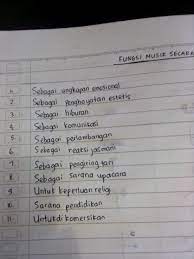 FUNGSI MUSIK SECARA
1. Sebagai ungkapan emosional
2. Sebagai Penghayatan estetis
3. Sebagai hiburan
4. Sebagai komunikasi
5. Sebagai perlambangan
6. Sebagai reaksi jasmani
7. Sebagai pengiring tari
8. Sebagai sarana upacara
9. Untuk keperluan religi
10. Sarana pendidikan
11. Untuk di komersikan